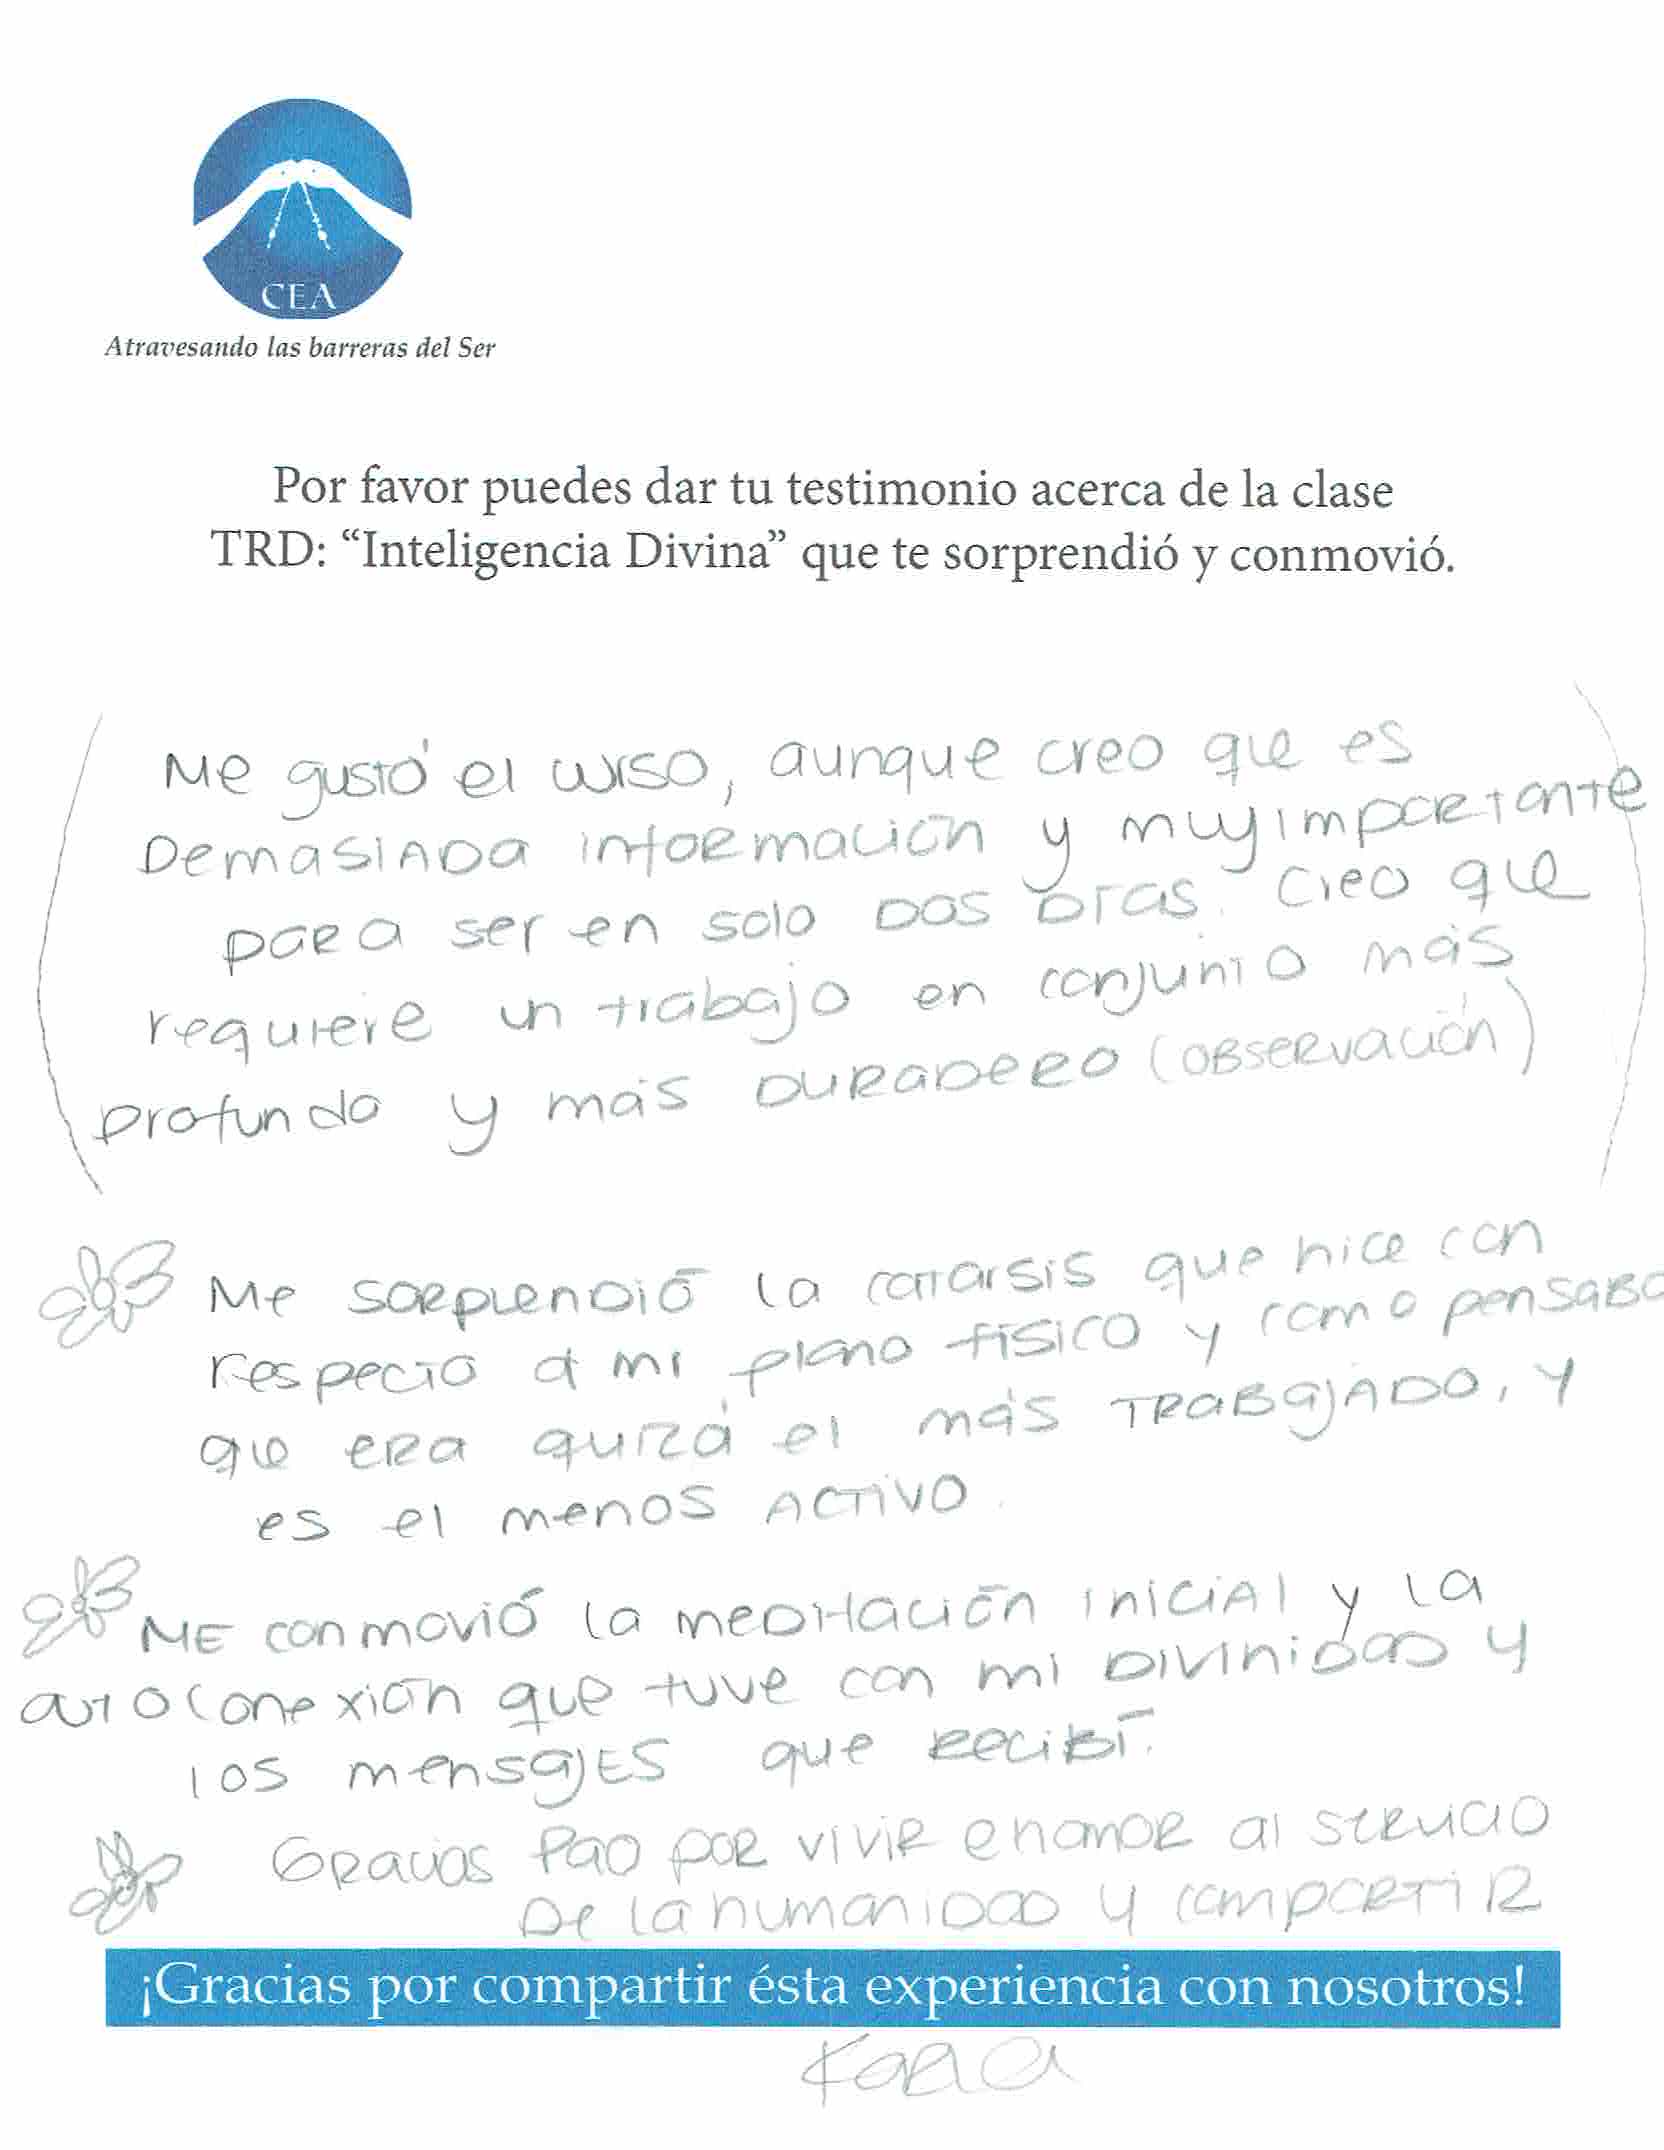 CEA
Atravesando las barreras del Ser
Por favor puedes dar tu testimonio acerca de la clase
TRD: “Inteligencia Divina” que te sorprendió y conmovió.
Me gustó el curso, aunque creo que es
Demasiada información y muy importante
para ser en solo Dos Días. Creo que
requiere un trabajo en conjunto más
profundo y más Duradero (observación)
Me sorprendió la catarsis que hice con
respecto a mi plano físico y como pensaba
que era quizá el más TRABAJADO, y
es el menos ACTIVO.
ME conmovió la meditación inicial y la
autoconexión que tuve con mi Divinidad y
los mensajes que recibí.
Gracias Pao por vivir en amor al servicio
De la humanidad y compartir
¡Gracias por compartir ésta experiencia con nosotros!
Kara